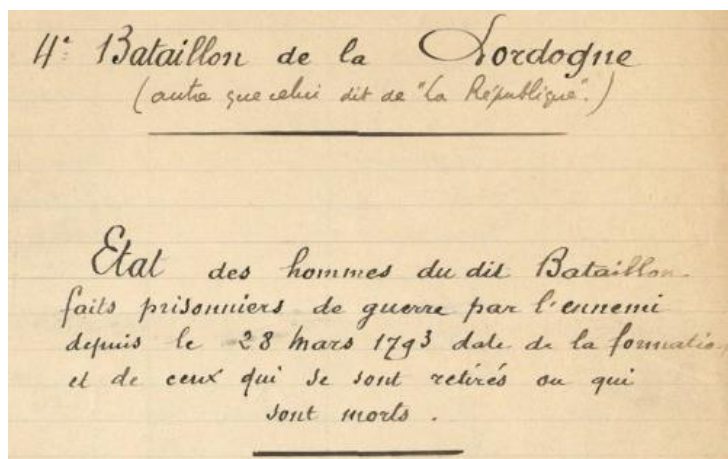 4e Bataillon de la Dordogne
(autre que celui dit de "La République".)
Etat des hommes du dit Bataillon
faits prisonniers de guerre par l'ennemi
depuis le 28 Mars 1793 date de la formation
et de ceux qui se sont retirés ou qui
sont morts.